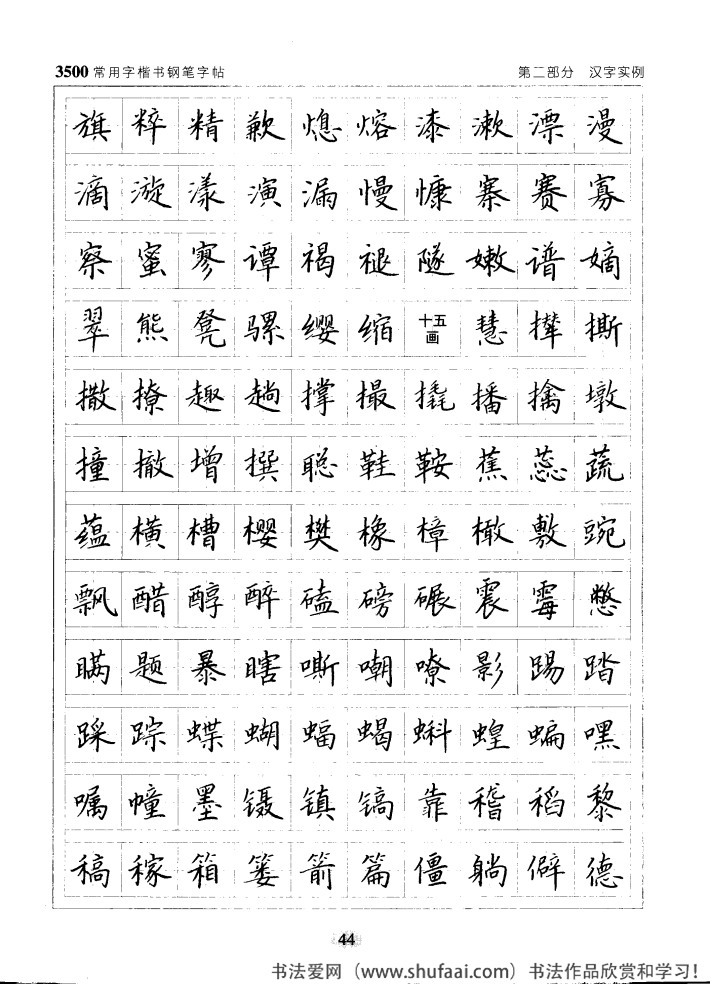 3500常用字楷书钢笔字帖 第二部分 汉字实例
旗粹精歉熄熔漆漱漂漫
滴漩漾演漏慢慷寨赛寡
察蜜寥谭褐褪隧嫩谱嫡
翠熊凳骡缨缩十五画慧撵撕
撒撩趣趟撑撮撬播擒墩
撞撤增撰聪鞋鞍蕉蕊蔬
蕴横槽樱樊橡樟橄敷豌
飘醋醇醉磕磅碾震霉憋
瞒题暴瞎嘶嘲嘹影踢踏
踩踪蝶蝴蝠蝎蝌蝗蝙嘿
嘱幢墨镊镇镐靠稽稻黎
稿稼箱篓箭篇僵躺僻德
44
书法爱网（www.shufaai.com）书法作品欣赏和学习！